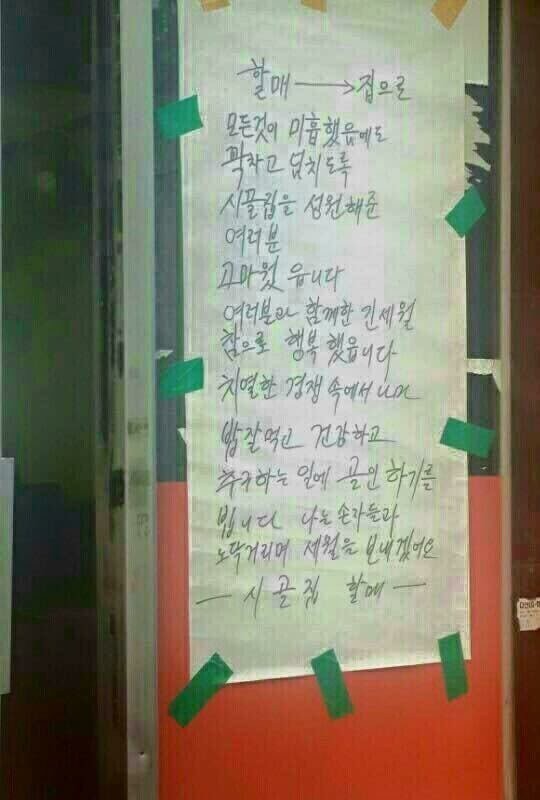 할매 → 집으로
모든것이 미흡했음에도
꽉차고 넘치도록
시골집을 성원해준
여러분
고마웠읍니다
여러분과 함께한 긴세월
참으로 행복했읍니다
치열한 경쟁 속에서
밥잘먹고 건강하고
추구하는 일에 골인 하기를
빕니다 나는 손자들과
노닥거리며 세월을 보내겠어요
― 시골집 할매 ―